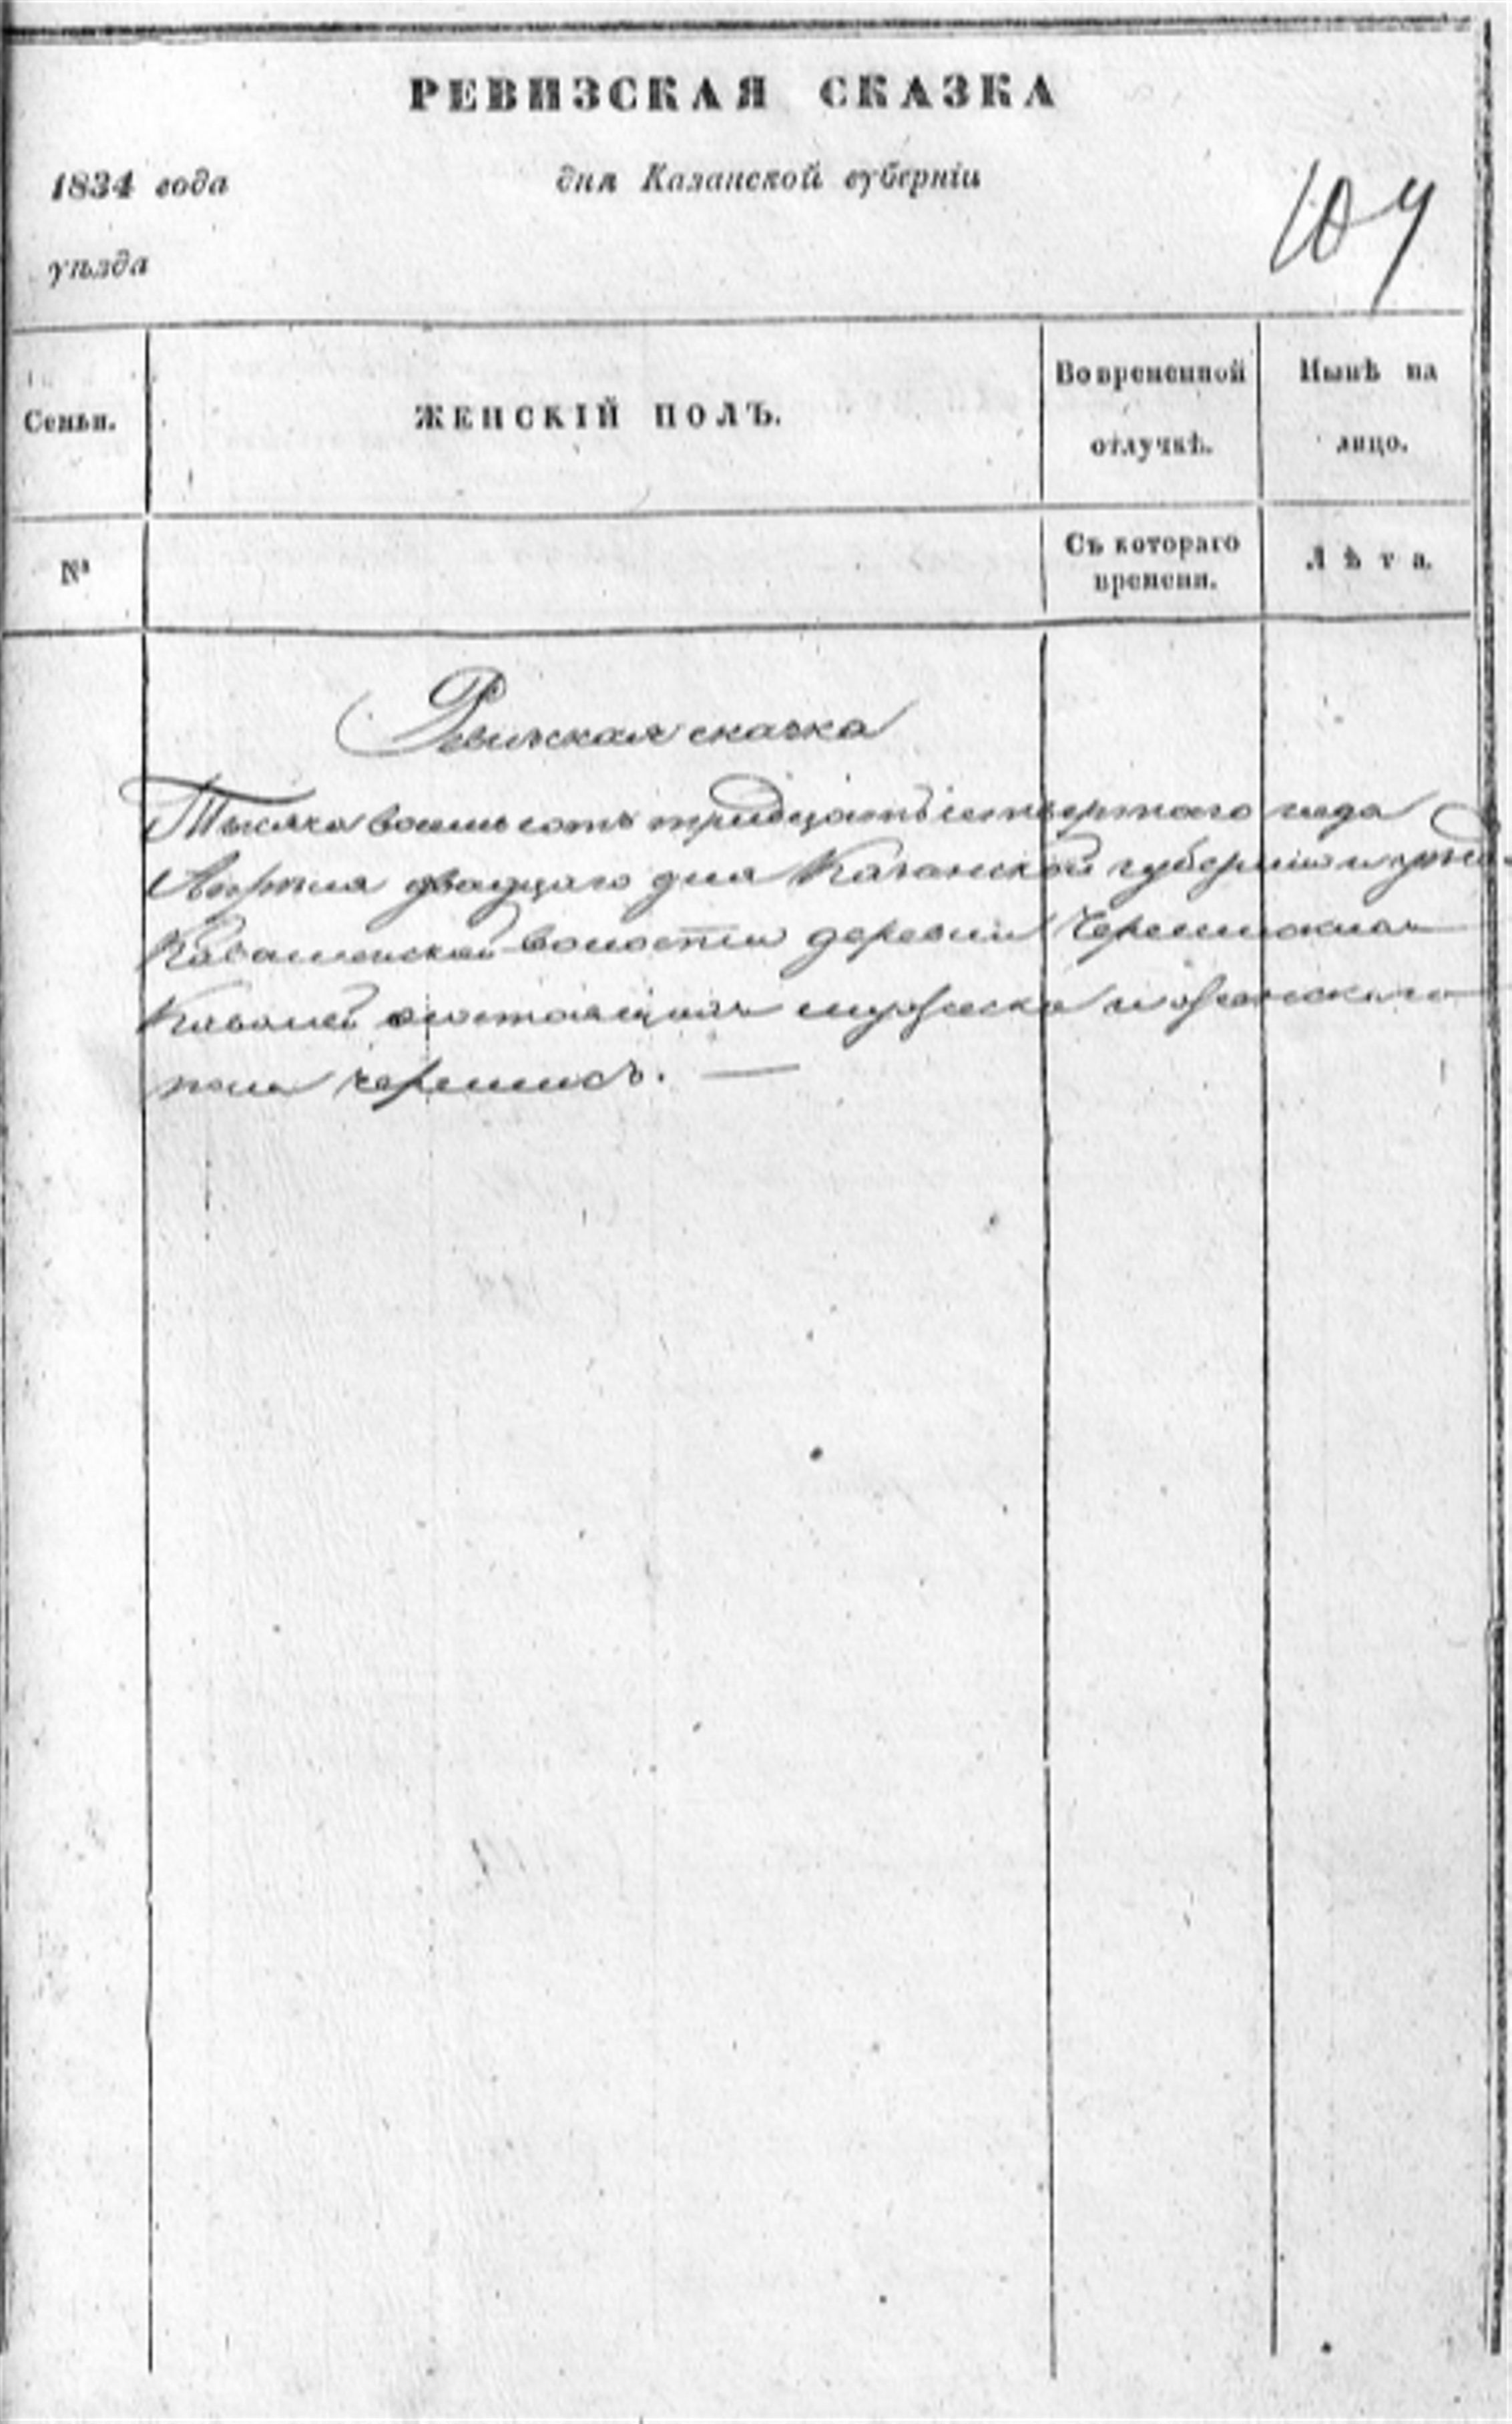 РЕВИЗСКАЯ СКАЗКА
1834 года дня Казанской губерніи
уѣзда
109
Семьи.
ЖЕНСКІЙ ПОЛЪ.
Во временной отлучкѣ.
Нынѣ на лицо.
№
Съ котораго времени.
Лѣта.
Ревизская сказка
Тысяча восемьсотъ тридцать четвертаго года
Апреля двадцаго дня Казанской губернии и уѣзда
волости деревни Черемискаго
состоящихъ мужеска и женскаго
пола черемисъ. —